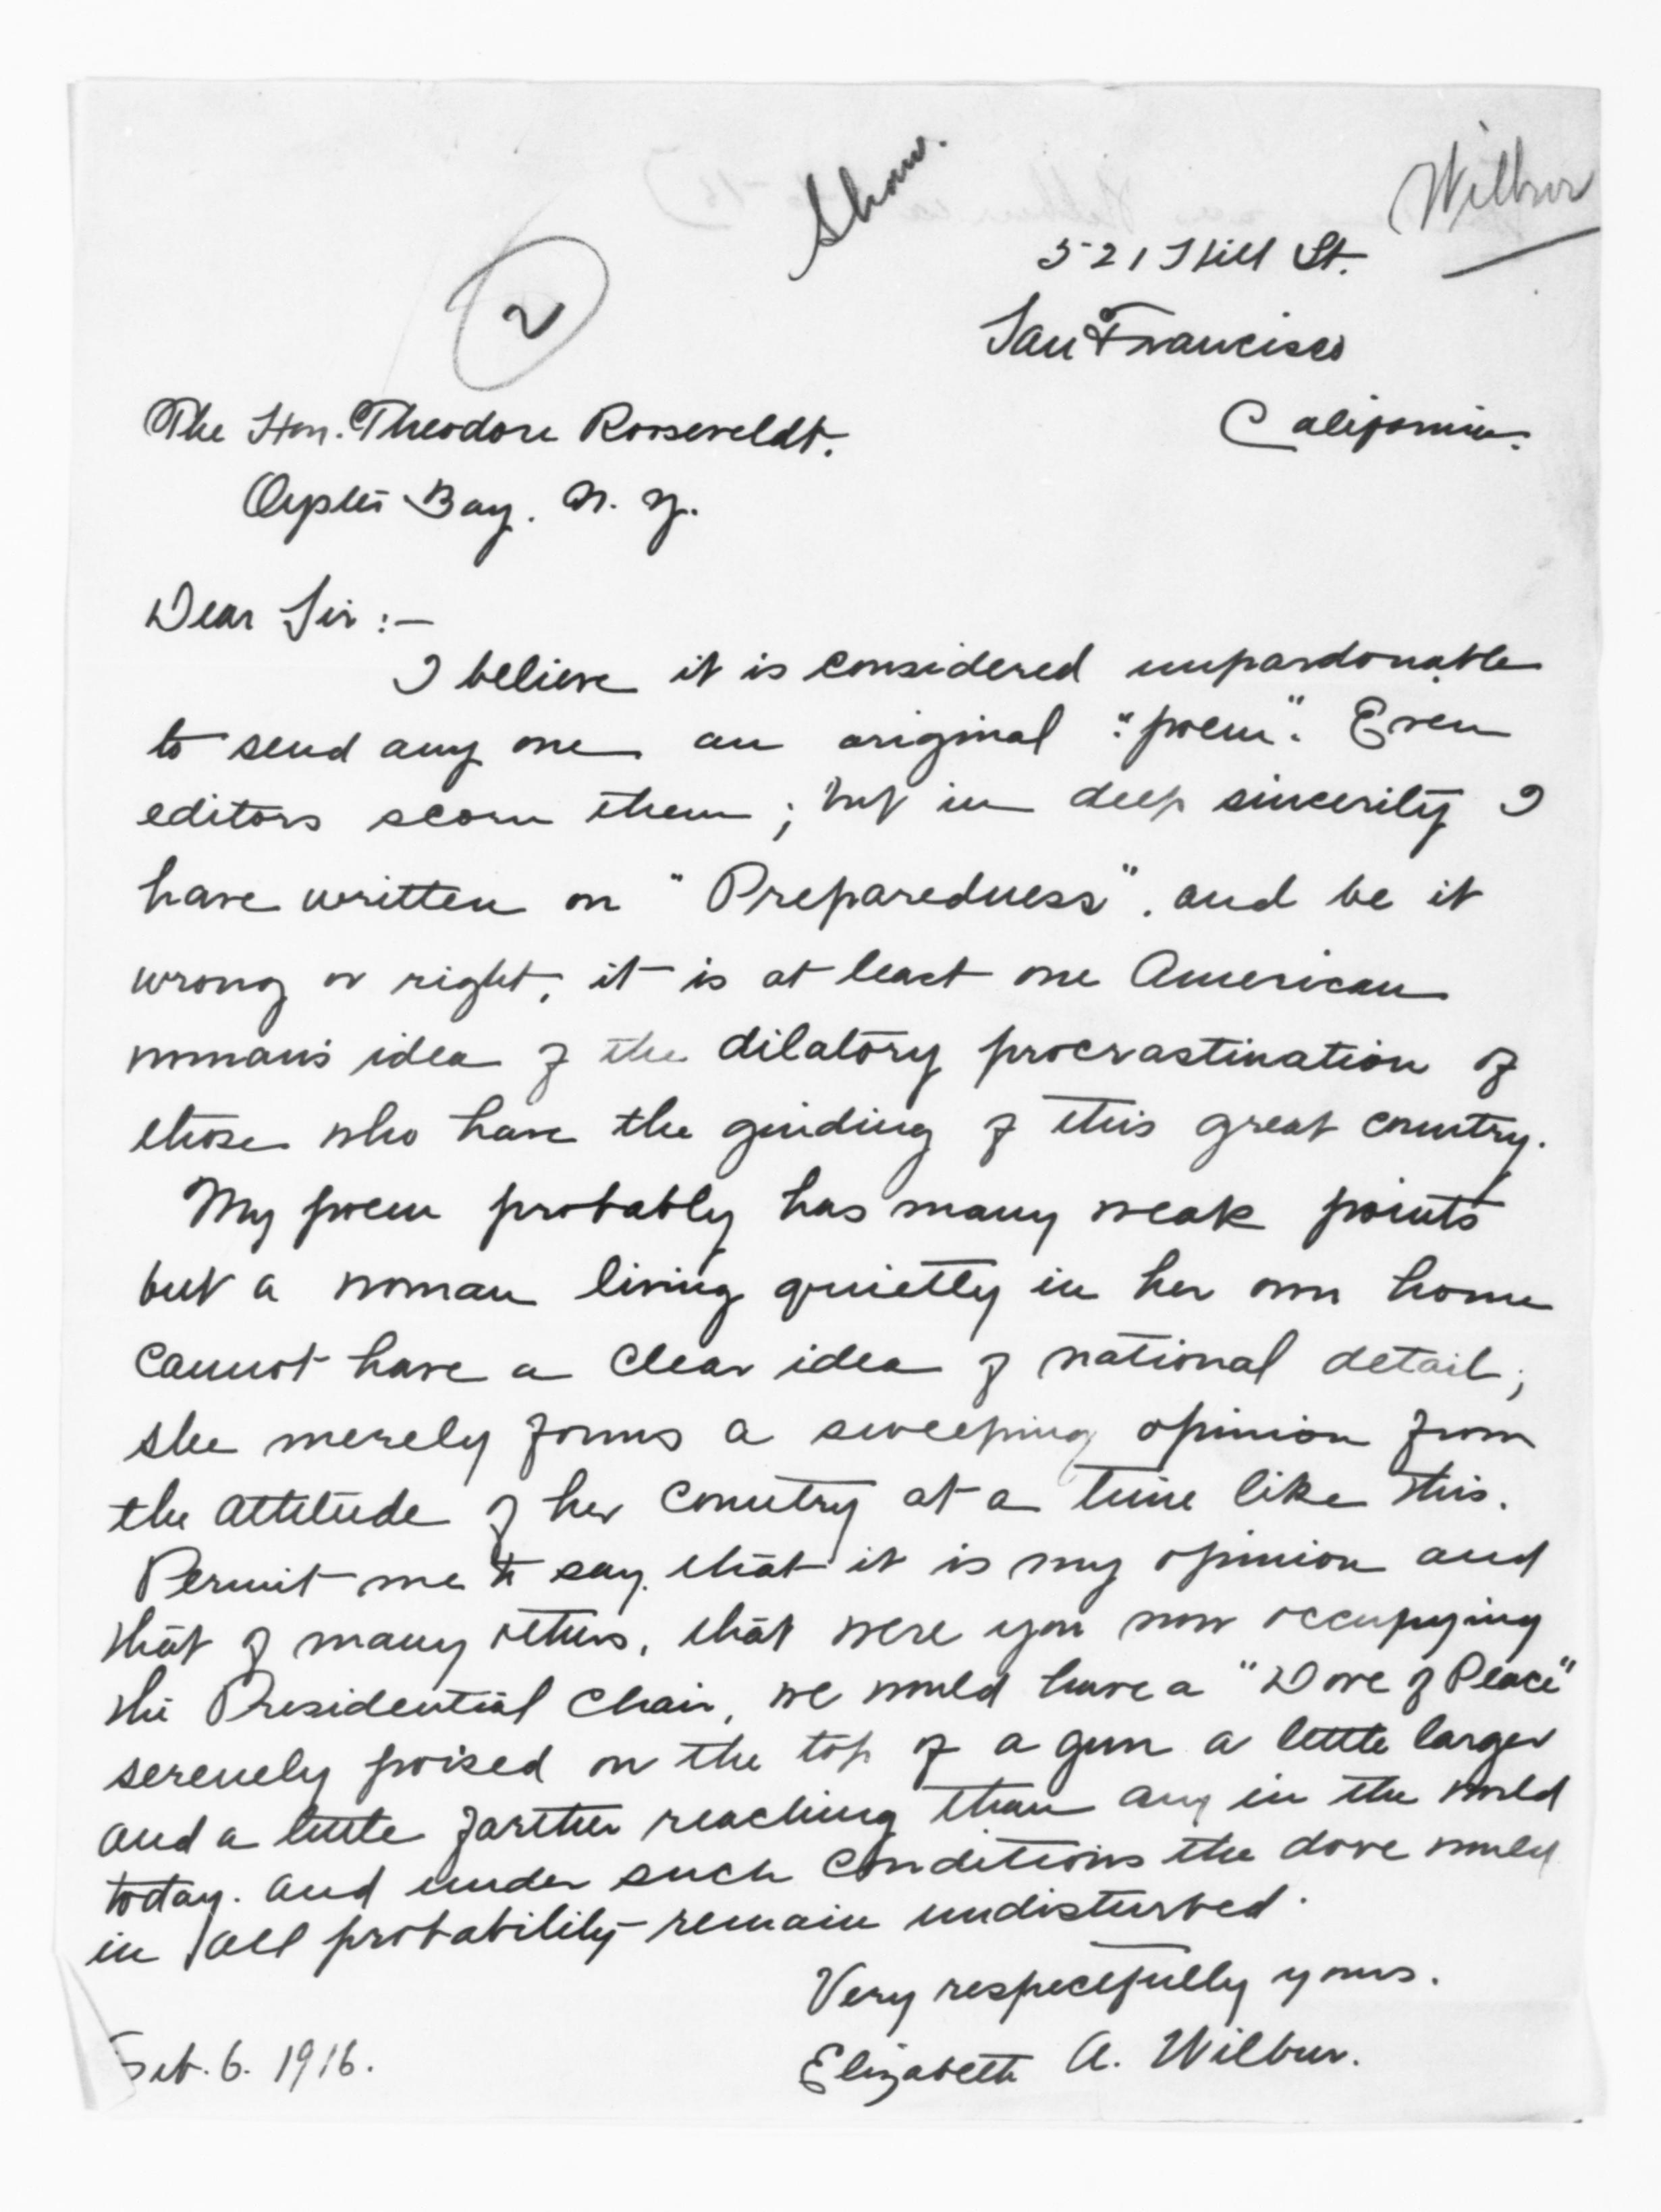 Show.
Wilbur
2
521 Hill St.
San Francisco
California.
The Hon. Theodore Rooseveldt.
Oyster Bay. N. Y.
Dear Sir :—
I believe it is considered unpardonable
to send any one an original "poem". Even
editors scorn them; but in deep sincerity I
have written on "Preparedness". and be it
wrong or right, it is at least one American
woman's idea of the dilatory procrastination of
those who have the guiding of this great country.
My poem probably has many weak points
but a woman living quietly in her own home
cannot have a clear idea of national detail;
she merely forms a sweeping opinion from
the attitude of her country at a time like this.
Permit me to say. that it is my opinion and
that of many others, that were you now occupying
the Presidential Chair, we would have a "Dove of Peace"
serenely poised on the top of a gun a little larger
and a little farther reaching than any in the world
today. and under such conditions the dove would
in all probability remain undisturbed.
Very respectfully yours.
Elizabeth A. Wilbur.
Feb. 6. 1916.